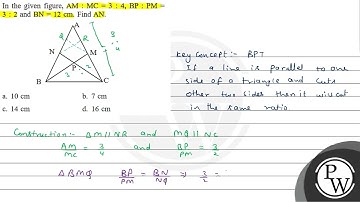 In the given figure, AM : MC = 3 : 4, BP : PM =
3 : 2 and BN = 12 cm. Find AN.
A
N
M
P
B
C
Q
R
3
4
a. 10 cm
b. 7 cm
c. 14 cm
d. 16 cm
Key Concept:- BPT
If a line is parallel to one
side of a triangle and cuts
other two sides then it will cut
in the same ratio
Construction:- BM || NR and MQ || NC
AM/MC = 3/4 and BP/PM = 3/2
△BMQ BP/PM = BN/NQ ⇒ 3/2 =
P
W